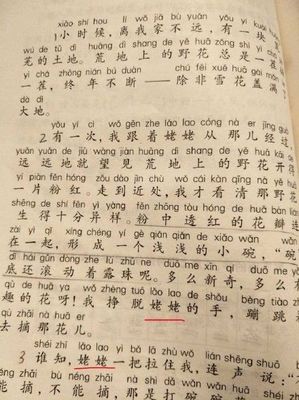 xiǎo shí hou lí wǒ jiā bù yuǎn yǒu yí kuài
1小时候,离我家不远,有一块
wú de tǔ dì huāng dì shang de yě huā zǒng shì yì
芜的土地。荒地上的野花总是一茬
yì chá zhōng nián bú duàn chú fēi xuě huā gài mǎn
一茬,终年不断——除非雪花盖满
dà dì
大地。
yǒu yí cì wǒ gēn zhe lǎo lao cóng nà er jīng guò
2有一次,我跟着姥姥从那儿经过,
yuǎn yuǎn de jiù wàng jiàn huāng dì shang de yě huā kāi de
远远地就望见荒地上的野花开得
yí piàn fěn hóng zǒu dào jìn chù wǒ cái kàn qīng nà yě huā
一片粉红。走到近处,我才看清那野花
shēng de shí fēn yì yàng fěn zhōng tòu hóng de huā bàn lián
生得十分异样。粉中透红的花瓣连
zài yì qǐ xíng chéng yí gè qiǎn qiǎn de xiǎo wǎn wǎn
在一起,形成一个浅浅的小碗,“碗”
dǐ hái gǔn dòng zhe lù zhū ne duō me xīn qí duō me
底还滚动着露珠呢。多么新奇,多么有
qù de huā ya wǒ zhèng tuō lǎo lao de shǒu bèng tiào
趣的花呀!我挣脱姥姥的手,蹦跳
qù zhāi nà huā er
去摘那花儿。
shéi zhī lǎo lao yì bǎ lā zhù wǒ lián shēng shuō
3 谁知,姥姥一把拉住我,连声说:“
néng zhāi bù néng zhāi nà shì dǎ wǎn wǎn huā
能摘,不能摘,那是打碗碗花